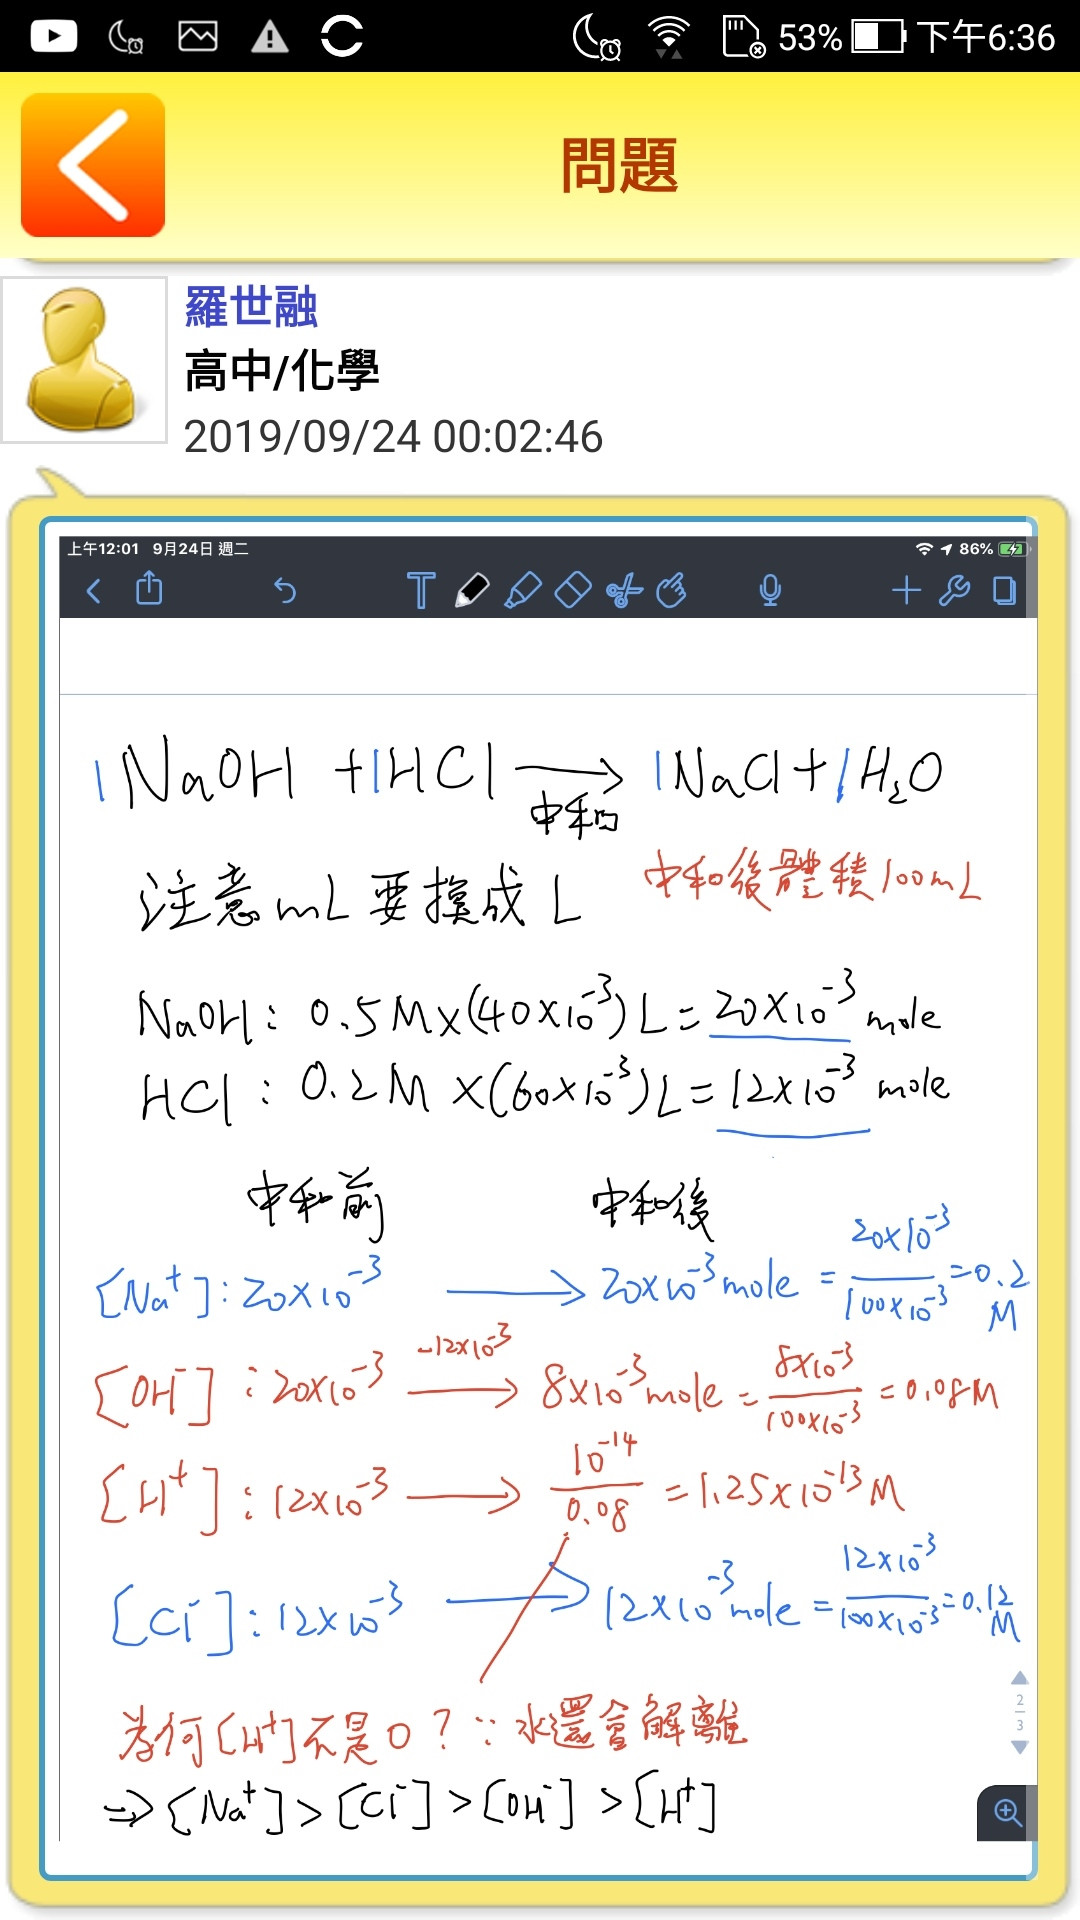 53% 下午6:36
問題
羅世融
高中/化學
2019/09/24 00:02:46
上午12:01 9月24日 週二 86%
T
1NaOH +1HCl → 1NaCl+1H₂O
中和
注意mL要換成L
中和後體積100mL
NaOH: 0.5M×(40×10⁻³)L=20×10⁻³ mole
HCl: 0.2M×(60×10⁻³)L=12×10⁻³ mole
中和前 中和後
[Na⁺]:20×10⁻³ → 20×10⁻³mole = 20×10⁻³/100×10⁻³ =0.2M
[OH⁻]:20×10⁻³ -12×10⁻³ → 8×10⁻³mole = 8×10⁻³/100×10⁻³ =0.08M
[H⁺]:12×10⁻³ → 10⁻¹⁴/0.08 =1.25×10⁻¹³M
[Cl⁻]:12×10⁻³ → 12×10⁻³mole = 12×10⁻³/100×10⁻³ =0.12M
為何[H⁺]不是0?∵水還會解離
⇒[Na⁺]>[Cl⁻]>[OH⁻]>[H⁺]
2
3